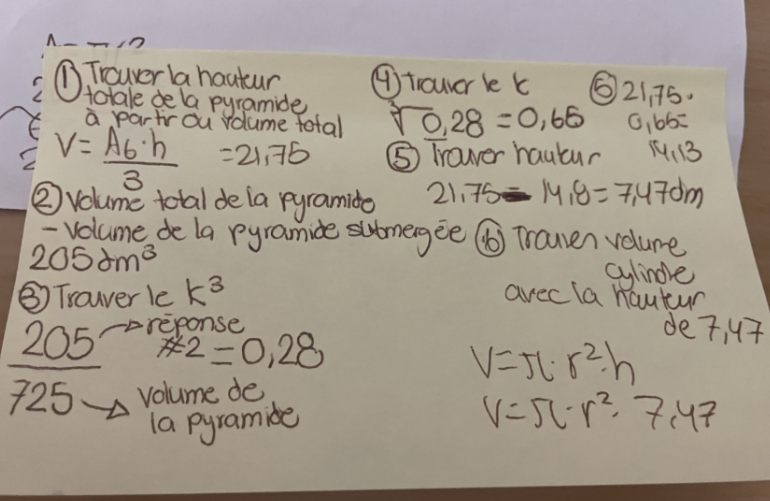 ① Trouver la hauteur
totale de la pyramide
à partir du volume total
V = Ab·h = 21,75
3
② Volume total de la pyramide
- volume de la pyramide submergée
205 dm³
③ Trouver le k³
205 → réponse
#2 = 0,28
725 → volume de
la pyramide
④ trouver le k
∛0,28 = 0,65
⑤ Trouver hauteur
21,75 - 14,8 = 7,47dm
⑤ 21,75·
0,65=
14,13
⑥ Trouver volume
cylindre
avec la hauteur
de 7,47
V = π·r²·h
V = π·r²·7,47